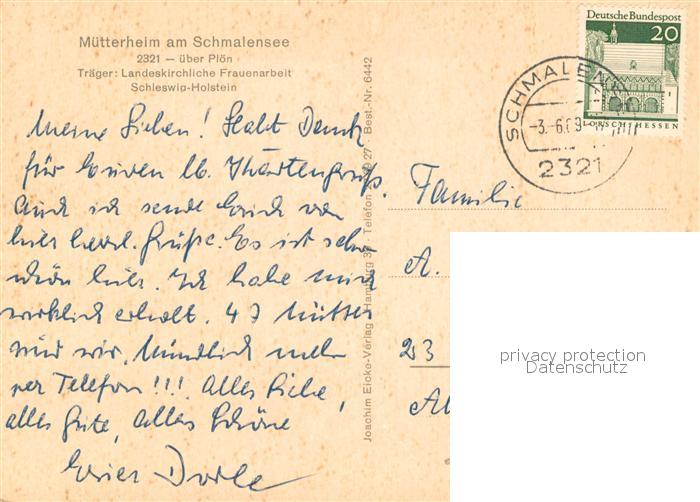 Mütterheim am Schmalensee
2321 — über Plön
Träger: Landeskirchliche Frauenarbeit
Schleswig-Holstein
Meine Lieben! Habt Dank
für Euren lb. Kartengruß.
Auch ich sende Euch von
hier herzl. Grüße. Es ist sehr
schön hier. Ich habe mich
wirklich erholt. 47 Mütter
sind wir. Mündlich mehr
per Telefon!!! Alles Liebe,
alles Gute, alles Schöne!
Joachim Eicke-Verlag Hamburg Telefon 27 Best.-Nr. 6442
Deutsche Bundespost
20
LORSCH/HESSEN
SCHMALEN
-3.-6.69
2321
Familie
A.
23
privacy protection
Datenschutz